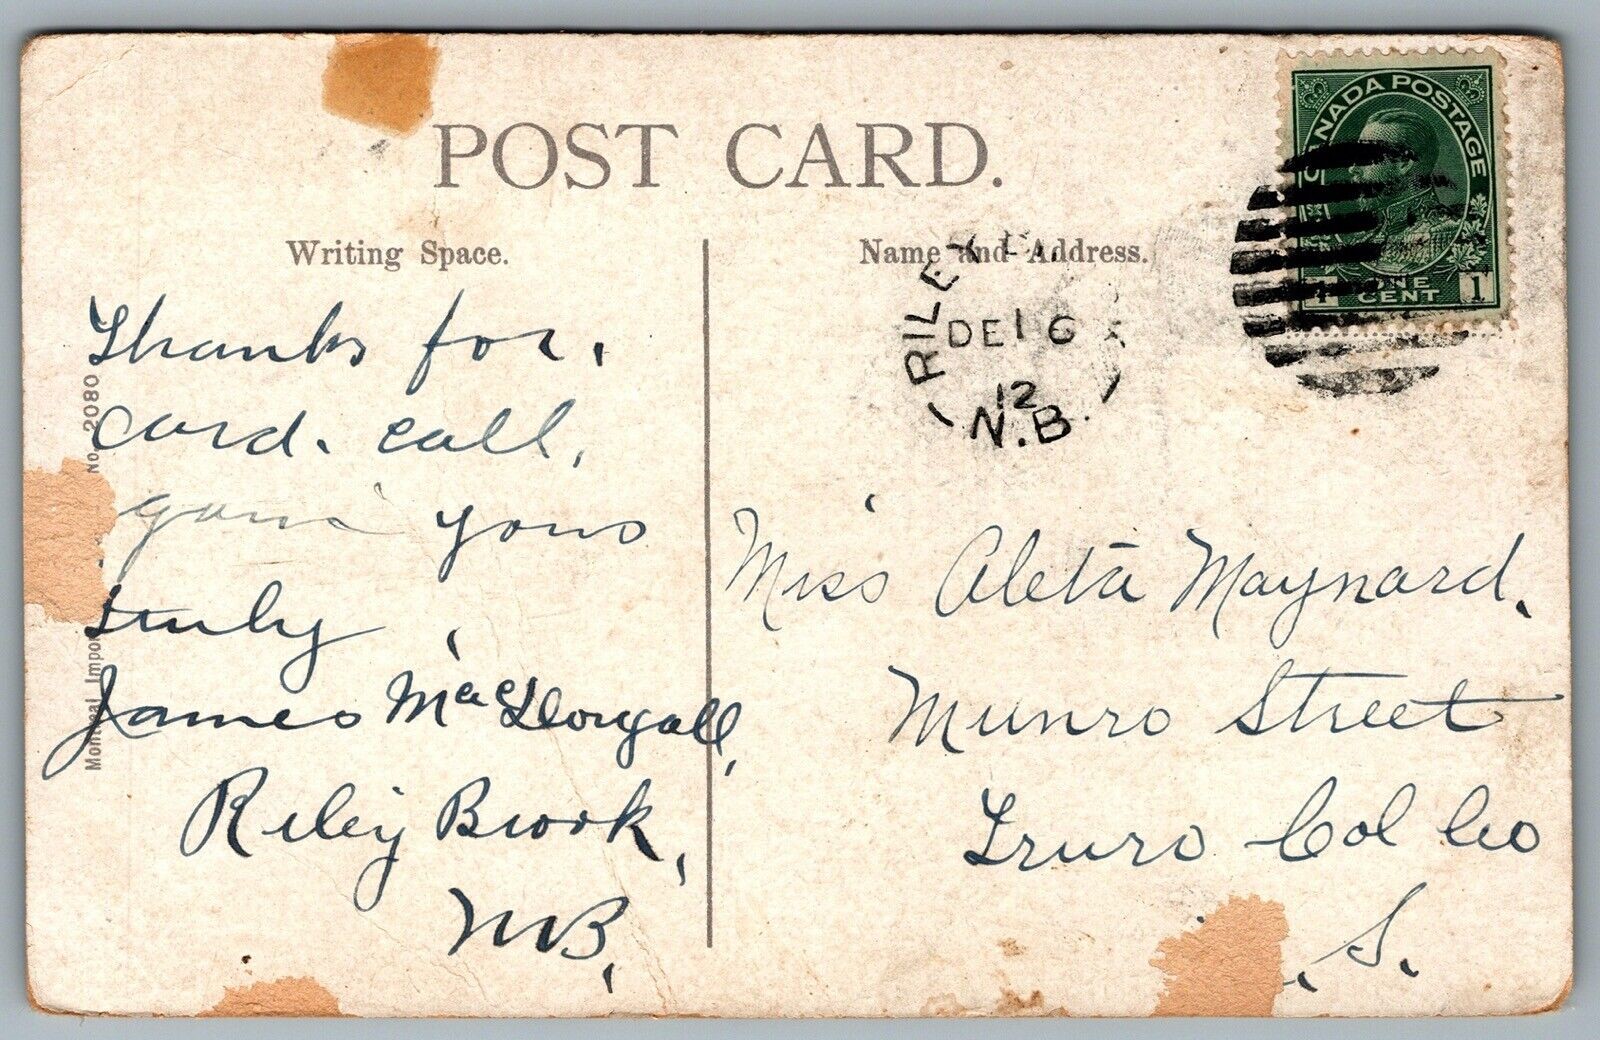 POST CARD.
Writing Space.
Name and Address.
CANADA POSTAGE
ONE CENT 1
RILEY
DE 16
12
N.B.
Thanks for.
card. call,
yours
truly,
James MacDougall,
Riley Brook,
NB,
Miss Aleta Maynard.
Munro Street
Truro Col Co
.S.
No. 2080
Montreal Impor